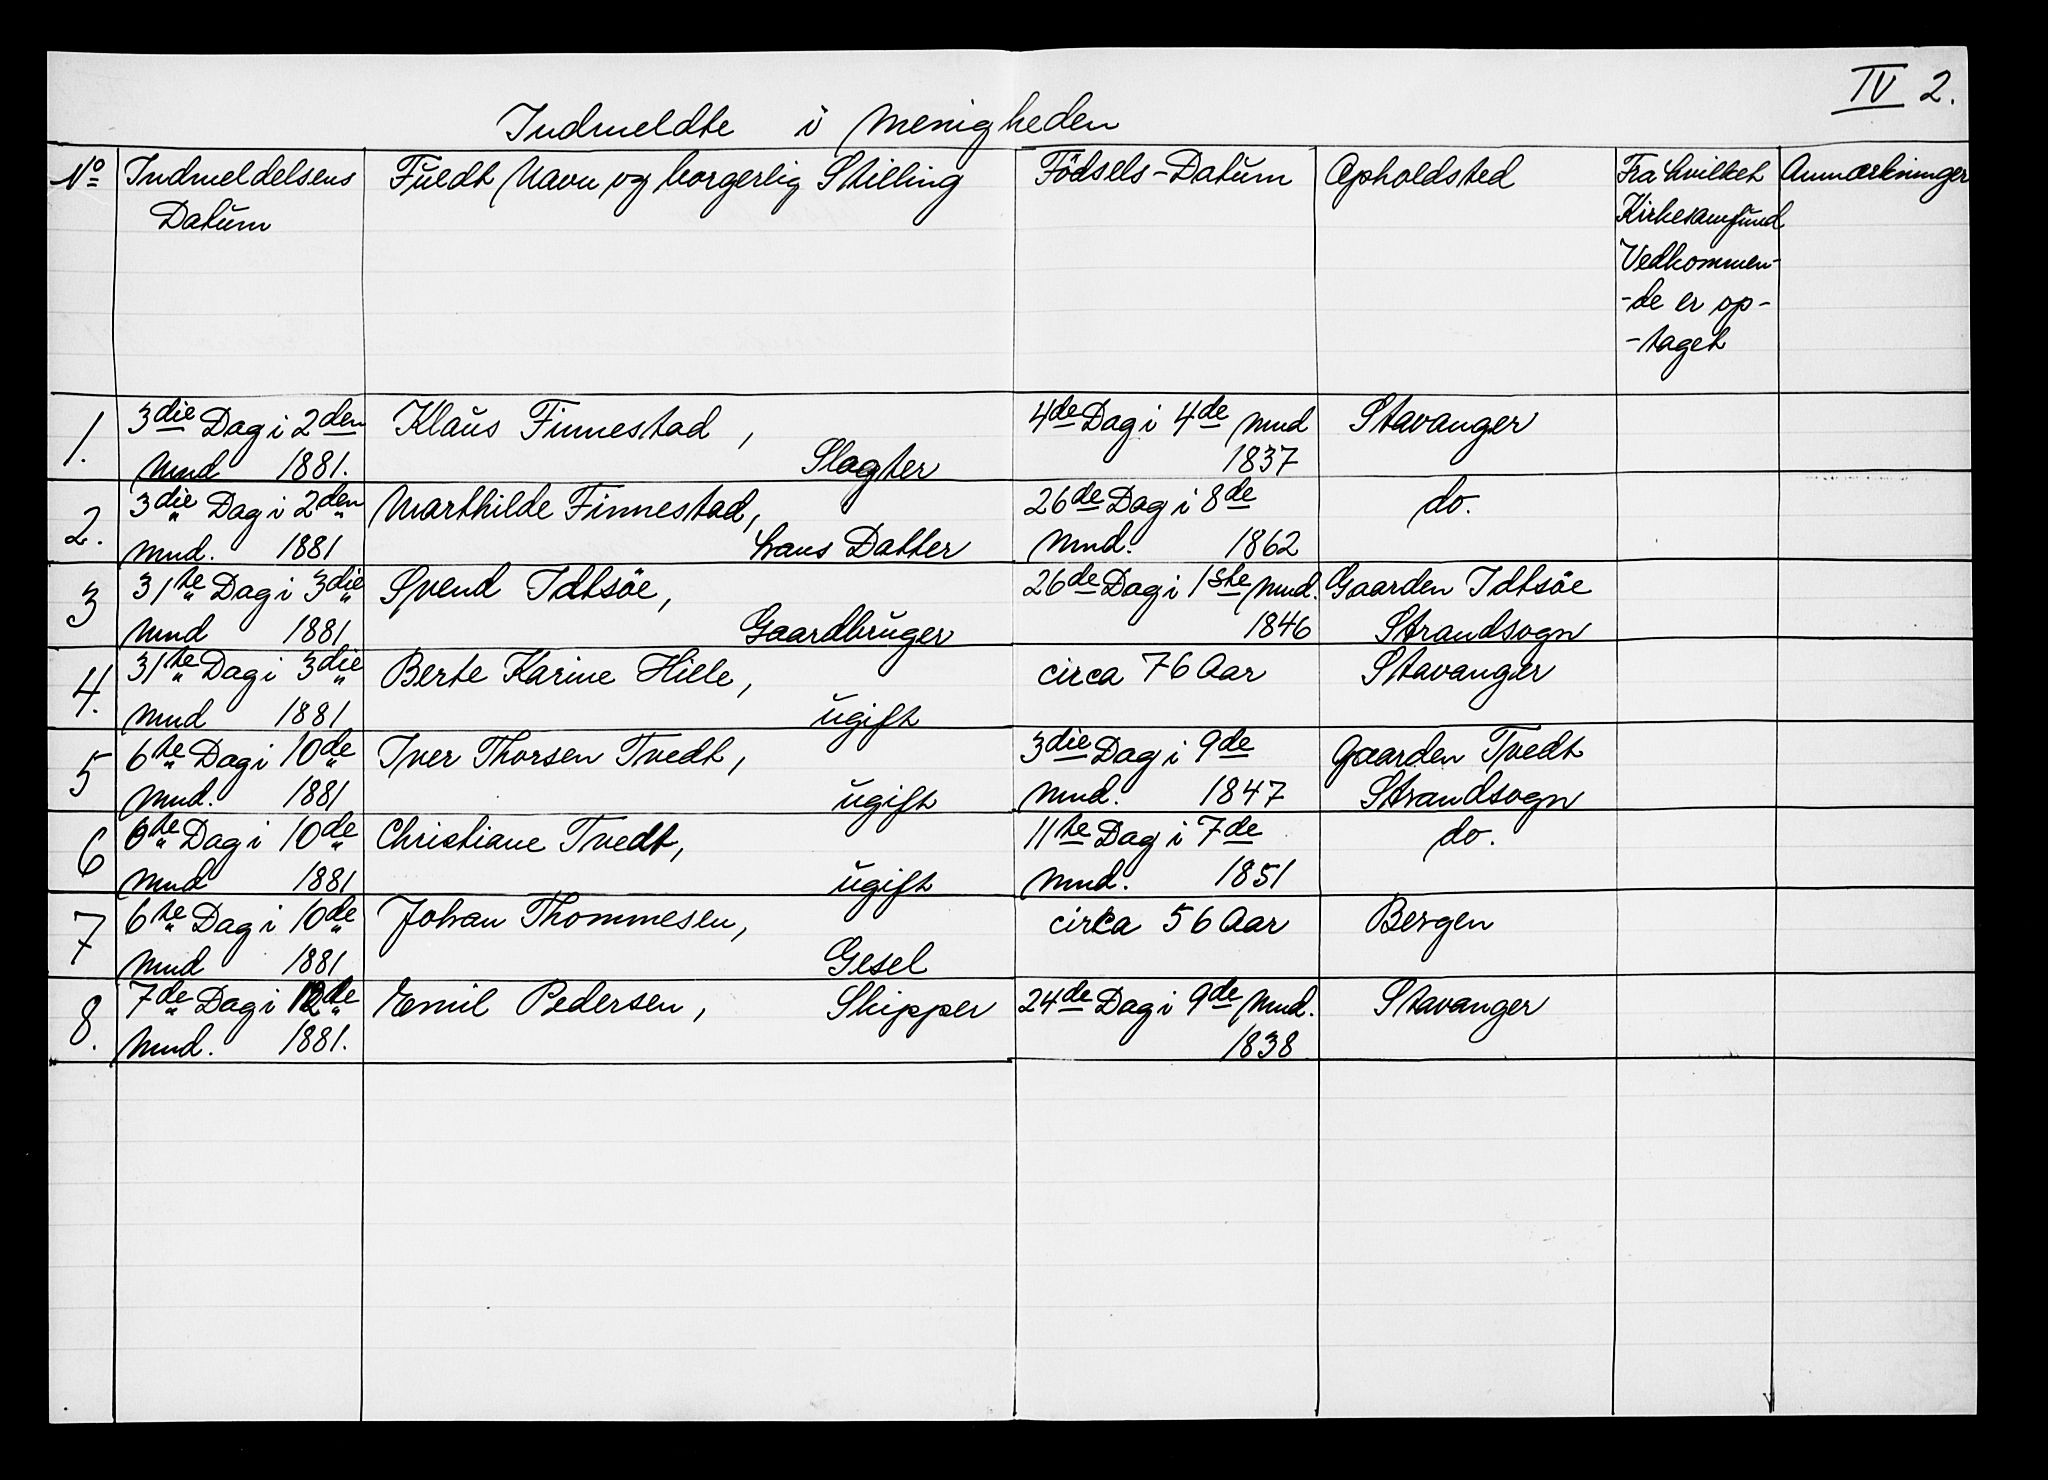 IV 2.
Indmeldte i Menigheden
No
Indmeldelsens
Datum
Fuldt Navn og borgerlig Stilling
Födsels-Datum
Opholdsted
Fra hvilket
Kirkesamfund
Vedkommen-
-de er op-
-taget
Anmærkninger
1.
3die Dag i 2den
Mnd 1881.
Klaus Finnestad,
Slagter
4de Dag i 4de Mnd
1837
Stavanger
2.
3die Dag i 2den
Mnd. 1881
Marthilde Finnestad,
hans Datter
26de Dag i 8de
Mnd. 1862
do.
3
31te Dag i 3die
Mnd 1881
Svend Idtsöe,
Gaardbruger
26de Dag i 1ste Mnd.
1846
Gaarden Idtsöe
Strandsogn
4.
31te Dag i 3die
Mnd 1881
Berte Karine Hille,
ugift
circa 76 Aar
Stavanger
5
6te Dag i 10de
Mnd. 1881
Iver Thorsen Tvedt,
ugift
3die Dag i 9de
Mnd. 1847
Gaarden Tvedt
Strandsogn
6
6te Dag i 10de
Mnd 1881
Christiane Tvedt,
ugift
11te Dag i 7de
Mnd. 1851
do.
7
6te Dag i 10de
Mnd 1881
Johan Thommesen,
Gesel
circa 56 Aar
Bergen
8.
7de Dag i 12de
Mnd. 1881.
Emil Pedersen, Skipper
24de Dag i 9de Mnd.
1838
Stavanger